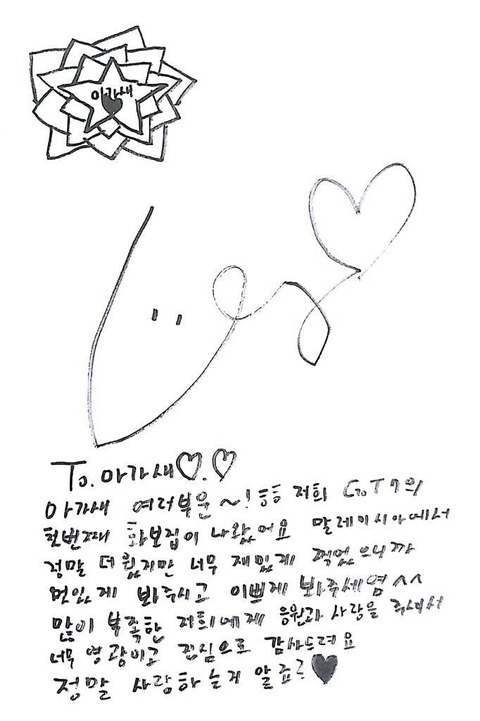 아가새
To. 아가새♡.♡
아가새 여러분~! ㅎㅎ 저희 GOT7의
첫번째 화보집이 나왔어요 말레이시아에서
정말 더웠지만 너무 재밌게 찍었으니까
멋있게 봐주시고 이쁘게 봐주세염 ^^
많이 부족한 저희에게 응원과 사랑을 주셔서
너무 영광이고 진심으로 감사드려요
정말 사랑하는지 알죠? ♥